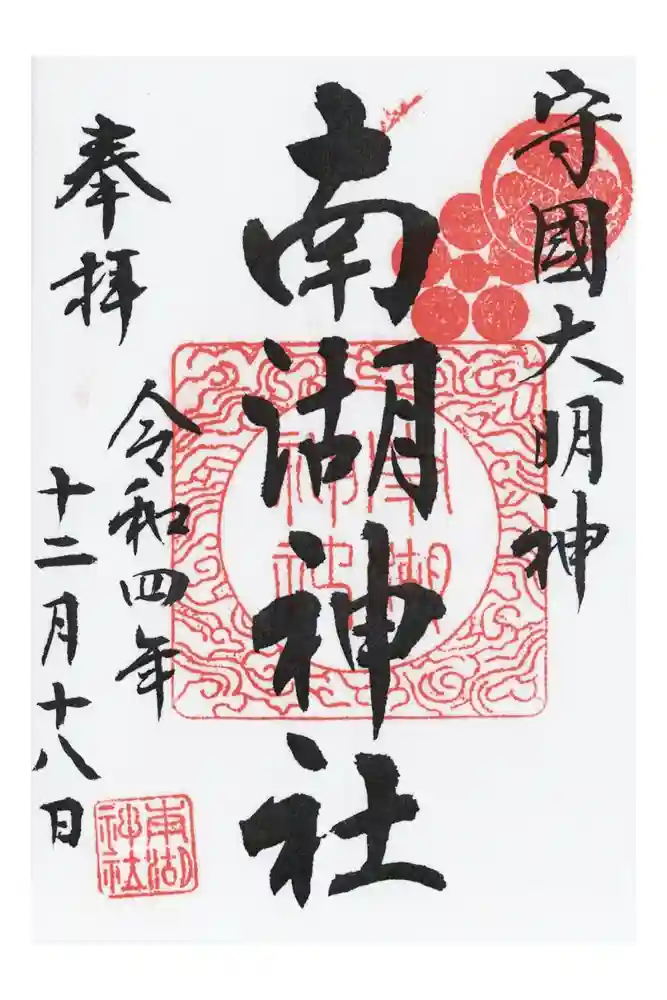 守國大明神
南湖神社
奉拝
令和四年
十二月十八日
南湖
神社
南湖
神社